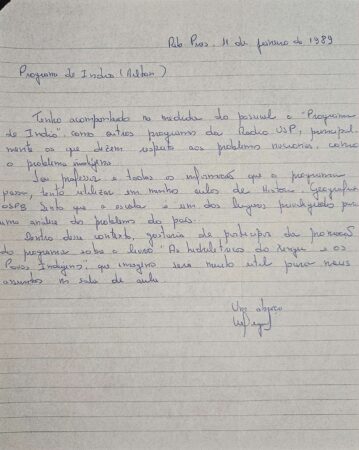 11 de fevereiro de 1989
Programa de Indio (Ailton)
Tenho acompanhado na medida do possivel o "Programa
de Indio", como outros programas da Radio USP, principal
mente os que dizem respeito aos problemas nacionais, como
o problema indígena.
Sou professor e todas as informações que o programa
passa, tento utilizar em minhas aulas de História, Geografia
OSPB. Sinto que a escola é um dos lugares privilegiados para
uma análise dos problemas do país.
Dentro desse contexto, gostaria de participar da promoção
do programa sobre o livro "As hidrelétricas do Xingu e os
Povos Indígenas", que imagino será muito útil para meus
assuntos na sala de aula.
Um abraço